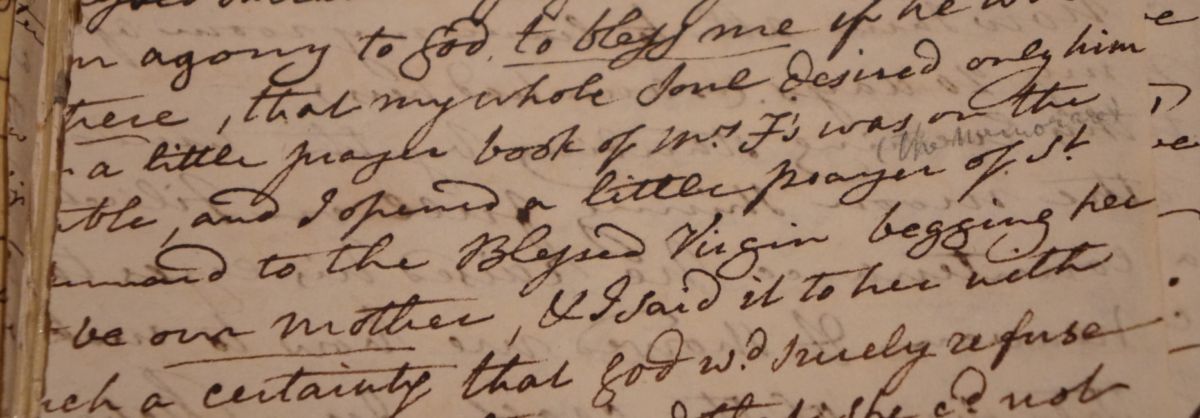 agony to God, to bless me if he w
here, that my whole Soul desired only him
a little prayer book of Mrs F's was on the
(the Memorare)
ble, and I opened a little prayer of St.
ernard to the Blessed Virgin begging her
be our Mother, & I said it to her with
ch a certainty that God wd. surely refuse
she cd. not